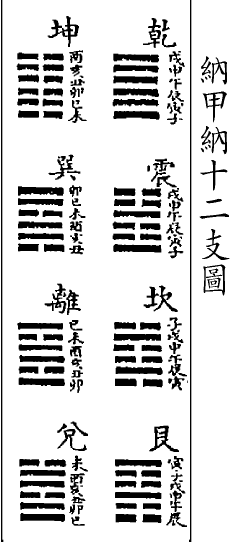 納甲納十二支圖
乾
戌申午辰寅子
震
戌申午辰寅子
坎
子戌申午辰寅
艮
寅子戌申午辰
坤
酉亥丑卯巳未
巽
卯巳未酉亥丑
離
巳未酉亥丑卯
兌
未酉亥丑卯巳